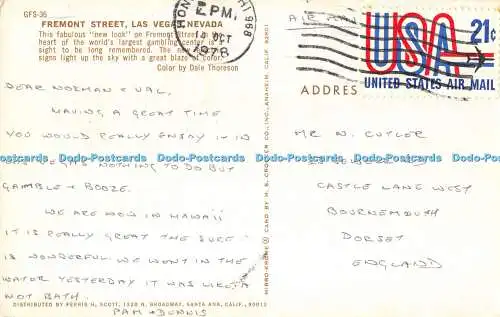 GFS-36
FREMONT STREET, LAS VEGAS, NEVADA
This fabulous "new look" on Fremont Street
heart of the world's largest gambling center is a
sight to be long remembered. The new
signs light up the sky with a great blaze of color.
Color by Dale Thoreson
HON HI 968
2 PM
OCT
1978
AIR MAIL
USA 21¢
UNITED STATES AIR MAIL
ADDRES
DEAR NORMAN & VAL,
HAVING A GREAT TIME
YOU WOULD REALLY ENJOY IT IN
VEGAS NOTHING TO DO BUT
GAMBLE & BOOZE.
WE ARE NOW IN HAWAII
IT IS REALLY GREAT THE SURF
IS WONDERFUL WE WENT IN THE
WATER YESTERDAY IT WAS LIKE A
HOT BATH.
PAM & DENNIS
MR N. CUTLER
CASTLE LANE WEST
BOURNEMOUTH
DORSET
ENGLAND
MIRRO-KROME® CARD BY H. S. CROCKER CO., INC., ANAHEIM, CALIF. 92801
DISTRIBUTED BY FERRIS H. SCOTT, 1328 N. BROADWAY, SANTA ANA, CALIF.
Dodo-Postcards Dodo-Postcards Dodo-Postcards Dodo-Postcards